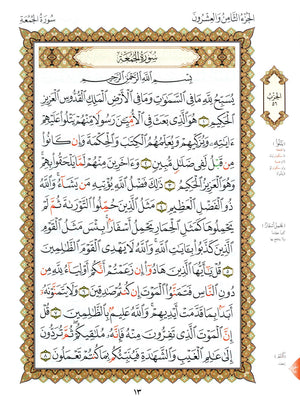 الجزء الثامن والعشرون
سورة الجمعة
سورة الجمعة
بسم الله الرحمن الرحيم
يسبح لله ما في السموات وما في الأرض الملك القدوس العزيز
الحكيم ١ هو الذي بعث في الأمين رسولا منهم يتلوا عليهم
ءايته ويزكيهم ويعلمهم الكتب والحكمة وإن كانوا
من قبل لفي ضلل مبين ٢ وءاخرين منهم لما يلحقوا بهم
وهو العزيز الحكيم ٣ ذلك فضل الله يؤتيه من يشاء والله
ذو الفضل العظيم ٤ مثل الذين حملوا التورىة ثم لم
يحملوها كمثل الحمار يحمل أسفارا بئس مثل القوم
الذين كذبوا بءايت الله والله لا يهدي القوم الظلمين
٥ قل يأيها الذين هادوا إن زعمتم أنكم أولياء لله من
دون الناس فتمنوا الموت إن كنتم صدقين ٦ ولا يتمنونه
أبدا بما قدمت أيديهم والله عليم بالظلمين ٧ قل
إن الموت الذي تفرون منه فإنه ملقيكم ثم تردون
إلى علم الغيب والشهدة فينبئكم بما كنتم تعملون ٨
الحزب
٥٦
١٣